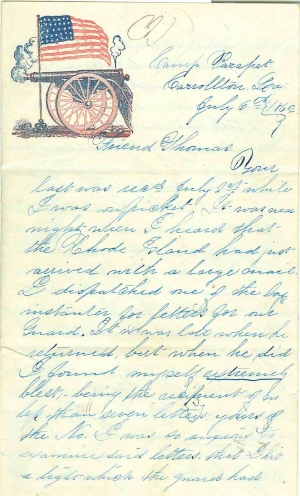 Camp Parapet
Carrollton, Loa
July 6th 1862
Friend Thomas
Your
last was recd July 2d, while
I was on picket. It was near
night when I heard that
the Rhode Island had just
arrived with a large mail.
I dispatched one of the boys
instanter for letters for our
Guard. It was late when he
returned, but when he did
I found myself extremely
blest, being the recipient of no
less than seven letters, yours of
the No. I was so anxious to
examine said letters, that I lit
a light which the guard had